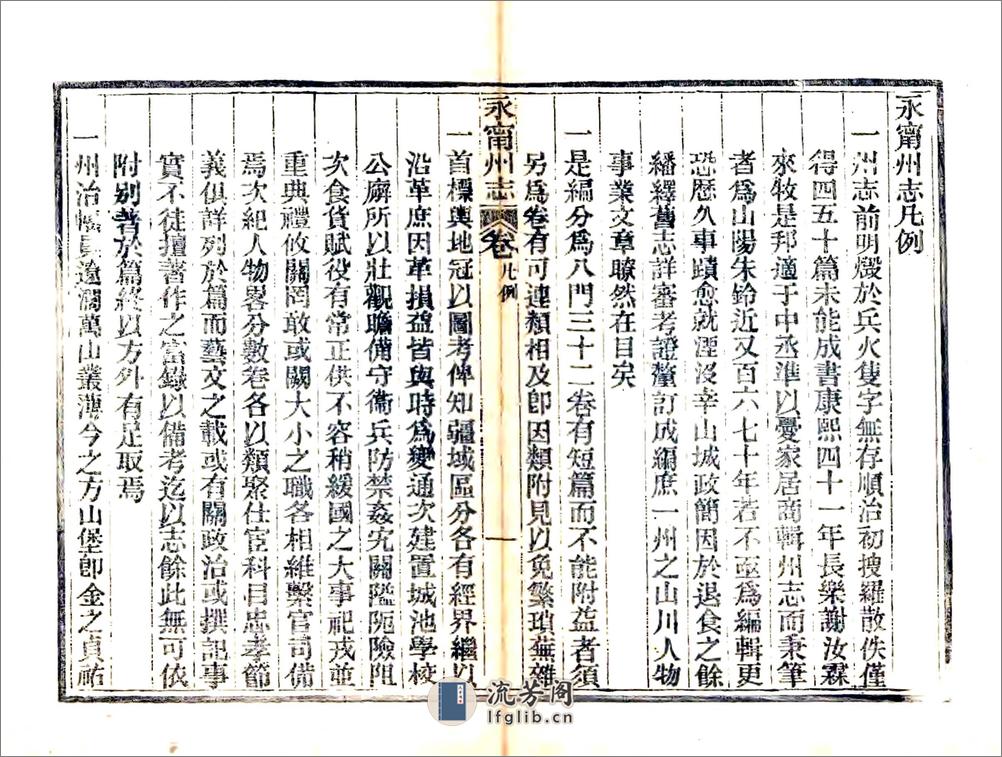 永甯州志凡例
一州志前明燬於兵火隻字無存順治初搜羅散佚僅
得四五十篇未能成書康熙四十一年長樂謝汝霖
來牧是邦適于中丞準以憂家居商輯州志而秉筆
者爲山陽朱鈴近又百六七十年若不亟爲編輯更
恐歷久事蹟愈就湮沒幸山城政簡因於退食之餘
繙繹舊志詳審考證釐訂成編庶一州之山川人物
事業文章瞭然在目矣
一是編分爲八門三十二卷有短篇而不能附益者須
另爲卷有可連類相及卽因類附見以免繁瑣蕪雜
永甯州志
卷
凡例
一
一首標輿地冠以圖考俾知疆域區分各有經界繼以
沿革庶因革損益皆與時爲變通次建置城池學校
公廨所以壯觀瞻備守衞兵防禁姦宄關隘阨險阻
次食貨賦役有常正供不容稍緩國之大事祀戎並
重典禮攸關罔敢或闕大小之職各相維繫官司備
焉次紀人物畧分數卷各以類聚仕宦科目忠孝節
義俱詳列於篇而藝文之載或有關政治或撰記事
實不徒擅著作之富錄以備考迄以志餘此無可依
附別著於篇終以方外有足取焉
一州治幅員遠濶萬山叢薄今之方山堡卽金之貞祐
流芳阁
lfglib.cn